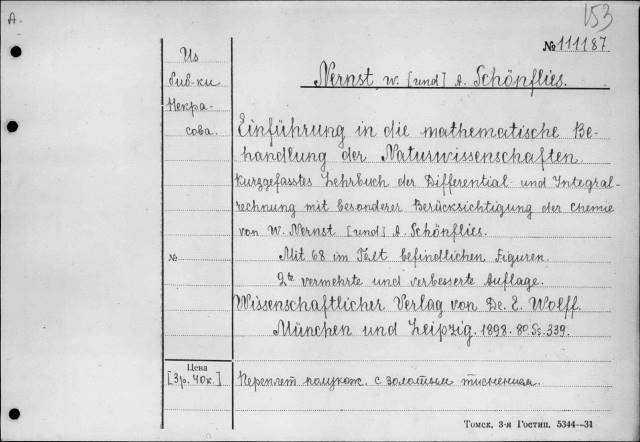 A.
153
№ 111187
Из
биб-ки
Некра-
сова.
Nernst, W. [und] A. Schönflies.
Einführung in die mathematische Be-
handlung der Naturwissenschaften.
Kurzgefasstes Lehrbuch der Differential- und Integral-
rechnung mit besonderer Berücksichtigung der Chemie
von W. Nernst [und] A. Schönflies.
№
Mit 68 im Text befindlichen Figuren.
2te vermehrte und verbesserte Auflage.
Wissenschaftlicher Verlag von Dr. E. Wolff.
München und Leipzig. 1898. 8º. Ss. 339.
Цена
[3 р. 40 к.]
Переплет полукож. с золотым тиснением.
Томск, 3-я Гостип. 5344—31